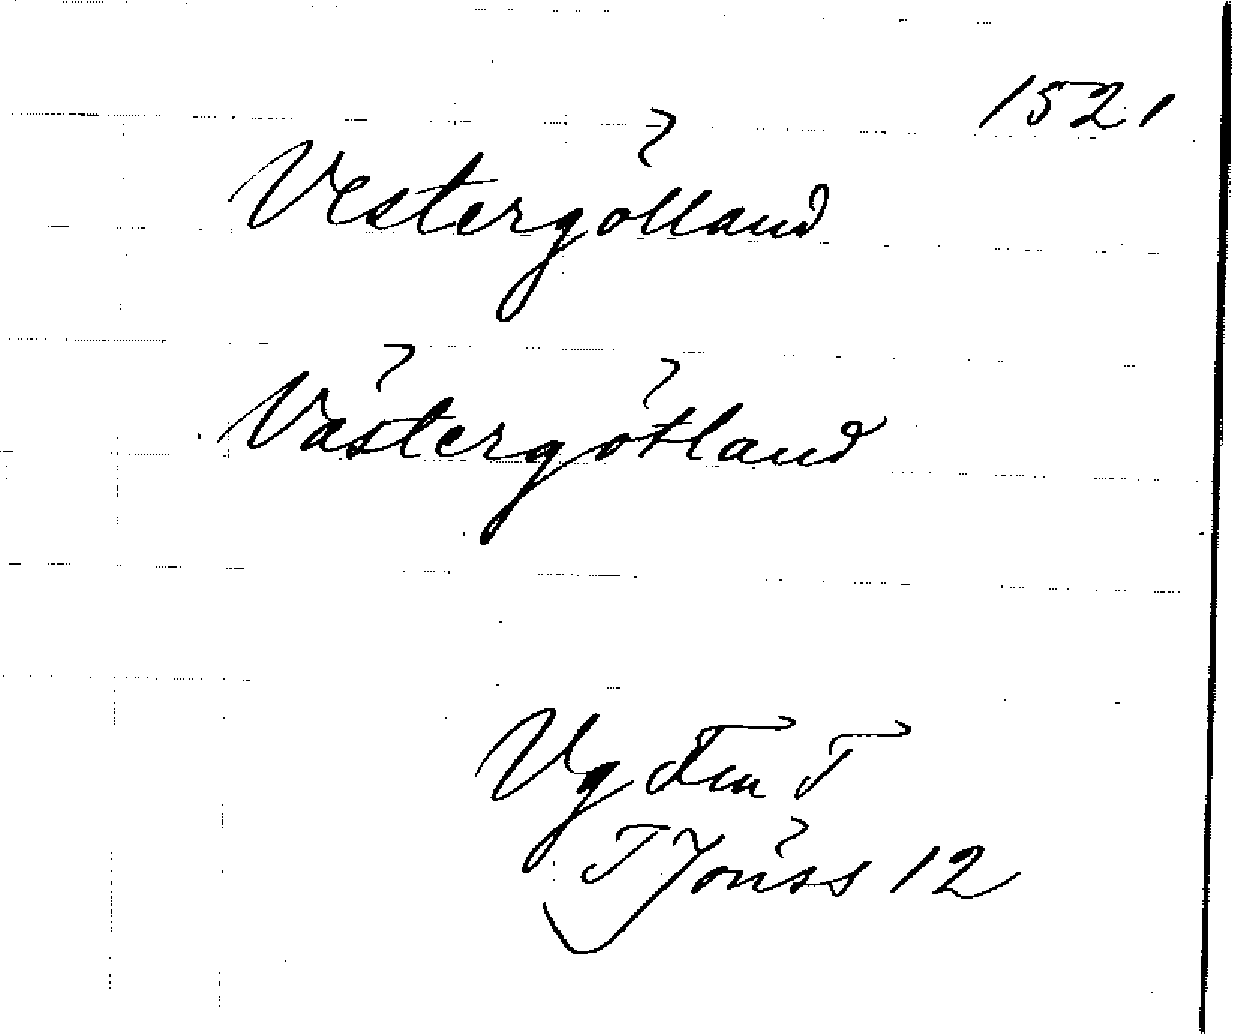 1521
Vestergötland
Västergötland
Vg Fem T
T Jönss 12